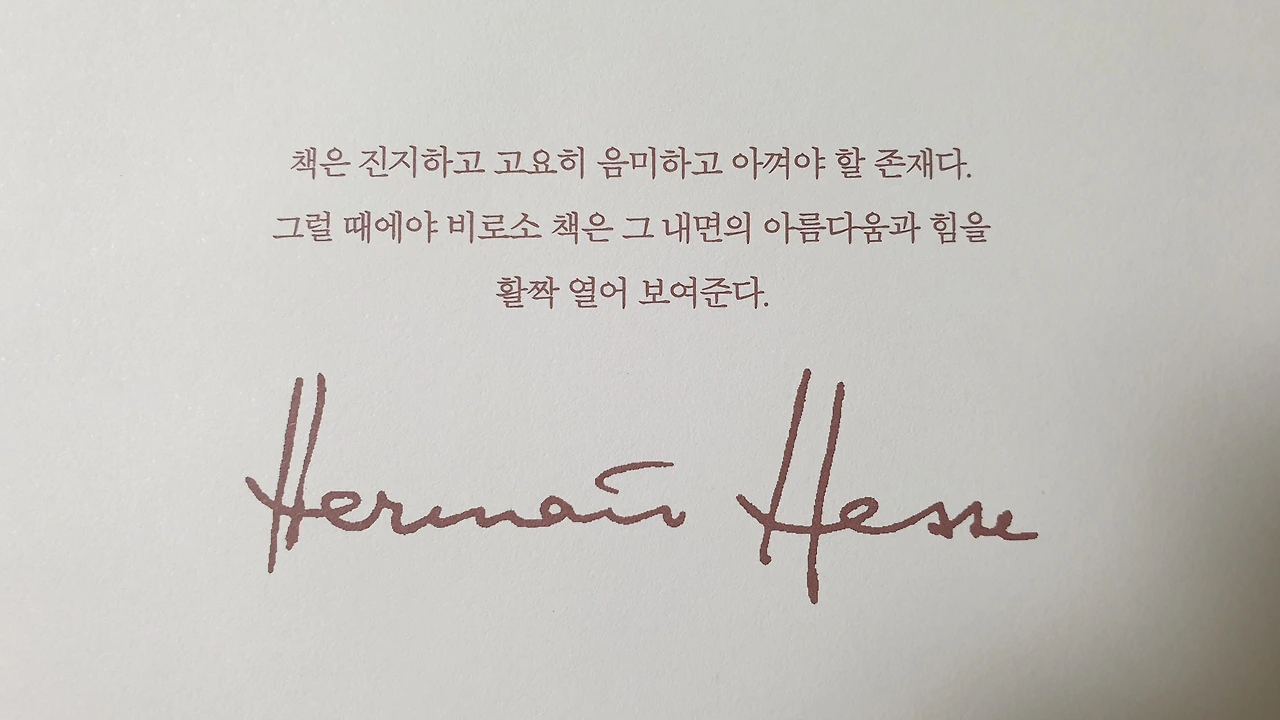 책은 진지하고 고요히 음미하고 아껴야 할 존재다.
그럴 때에야 비로소 책은 그 내면의 아름다움과 힘을
활짝 열어 보여준다.
Hermann Hesse